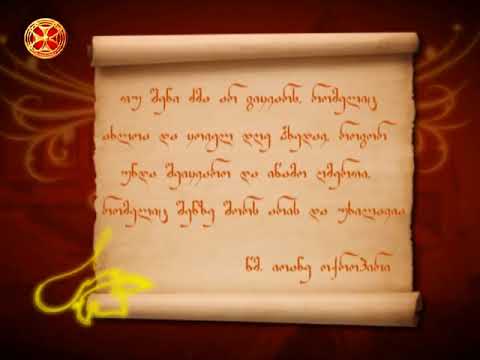 თუ შენი ძმა არ გიყვარს, რომელიც
ახლოა და ყოველ დღე ჰხედავ, როგორ
უნდა შეიყვარო და იწამო ღმერთი,
რომელიც შენზე შორს არის და უხილავია
წმ. იოანე ოქროპირი